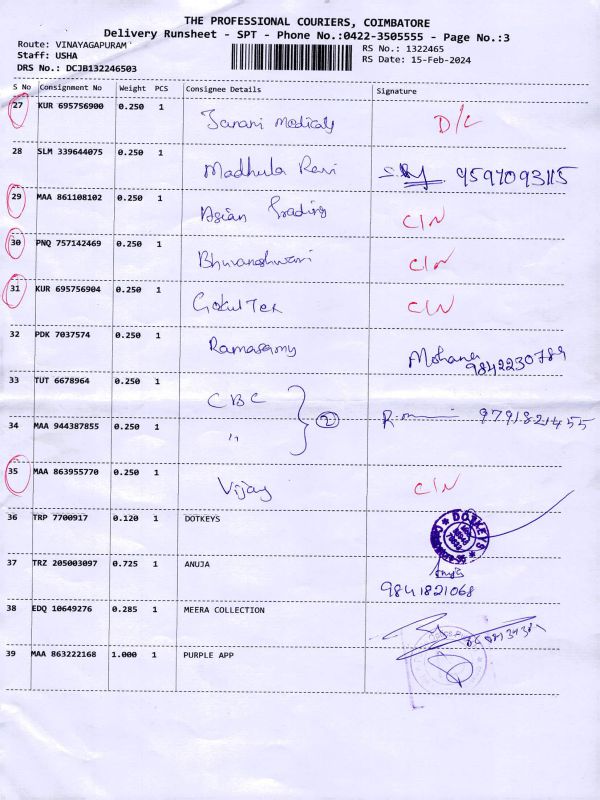 THE PROFESSIONAL COURIERS, COIMBATORE
Delivery Runsheet - SPT - Phone No.:0422-3505555 - Page No.:3
Route: VINAYAGAPURAM
RS No.: 1322465
Staff: USHA
RS Date: 15-Feb-2024
DRS No.: DCJB132246503
S No Consignment No Weight PCS Consignee Details Signature
27 KUR 695756900 0.250 1 Janani Medicals D/L
28 SLM 339644075 0.250 1 Madhula Ravi 9597093115
29 MAA 861108102 0.250 1 Asian Trading CIN
30 PNQ 757142469 0.250 1 Bhuvaneshwari CIN
31 KUR 695756904 0.250 1 Gokul Tex CIN
32 PDK 7037574 0.250 1 Ramasamy Mohana 9842230789
33 TUT 6678964 0.250 1 CBC
② 9791821455
34 MAA 944387855 0.250 1 "
35 MAA 863955770 0.250 1 Vijay CIN
36 TRP 7700917 0.120 1 DOTKEYS DOTKEYS
37 TRZ 205003097 0.725 1 ANUJA
9841821068
38 EDQ 10649276 0.285 1 MEERA COLLECTION
39 MAA 863222168 1.000 1 PURPLE APP